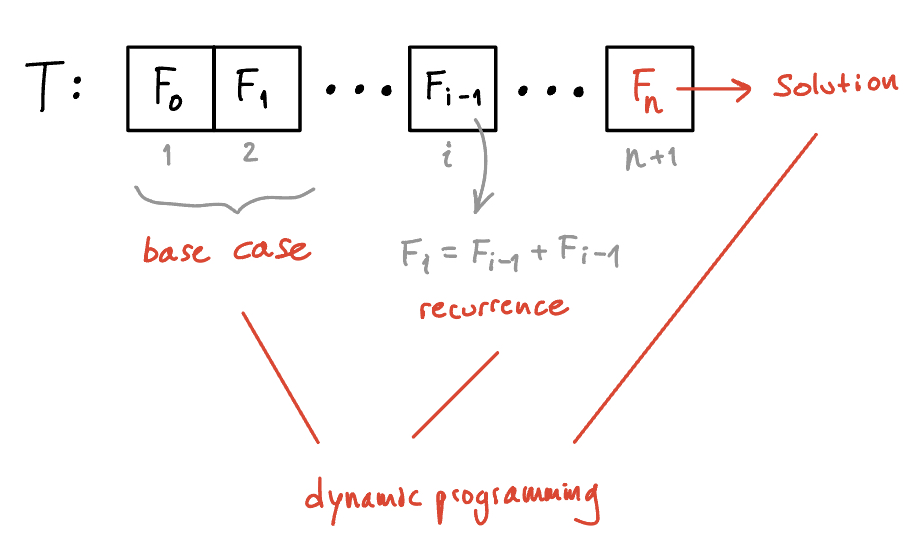 T: F₀ F₁ ... Fᵢ₋₁ ... Fₙ → Solution
1 2 i n+1
base case
F₁ = Fᵢ₋₁ + Fᵢ₋₁
recurrence
dynamic programming